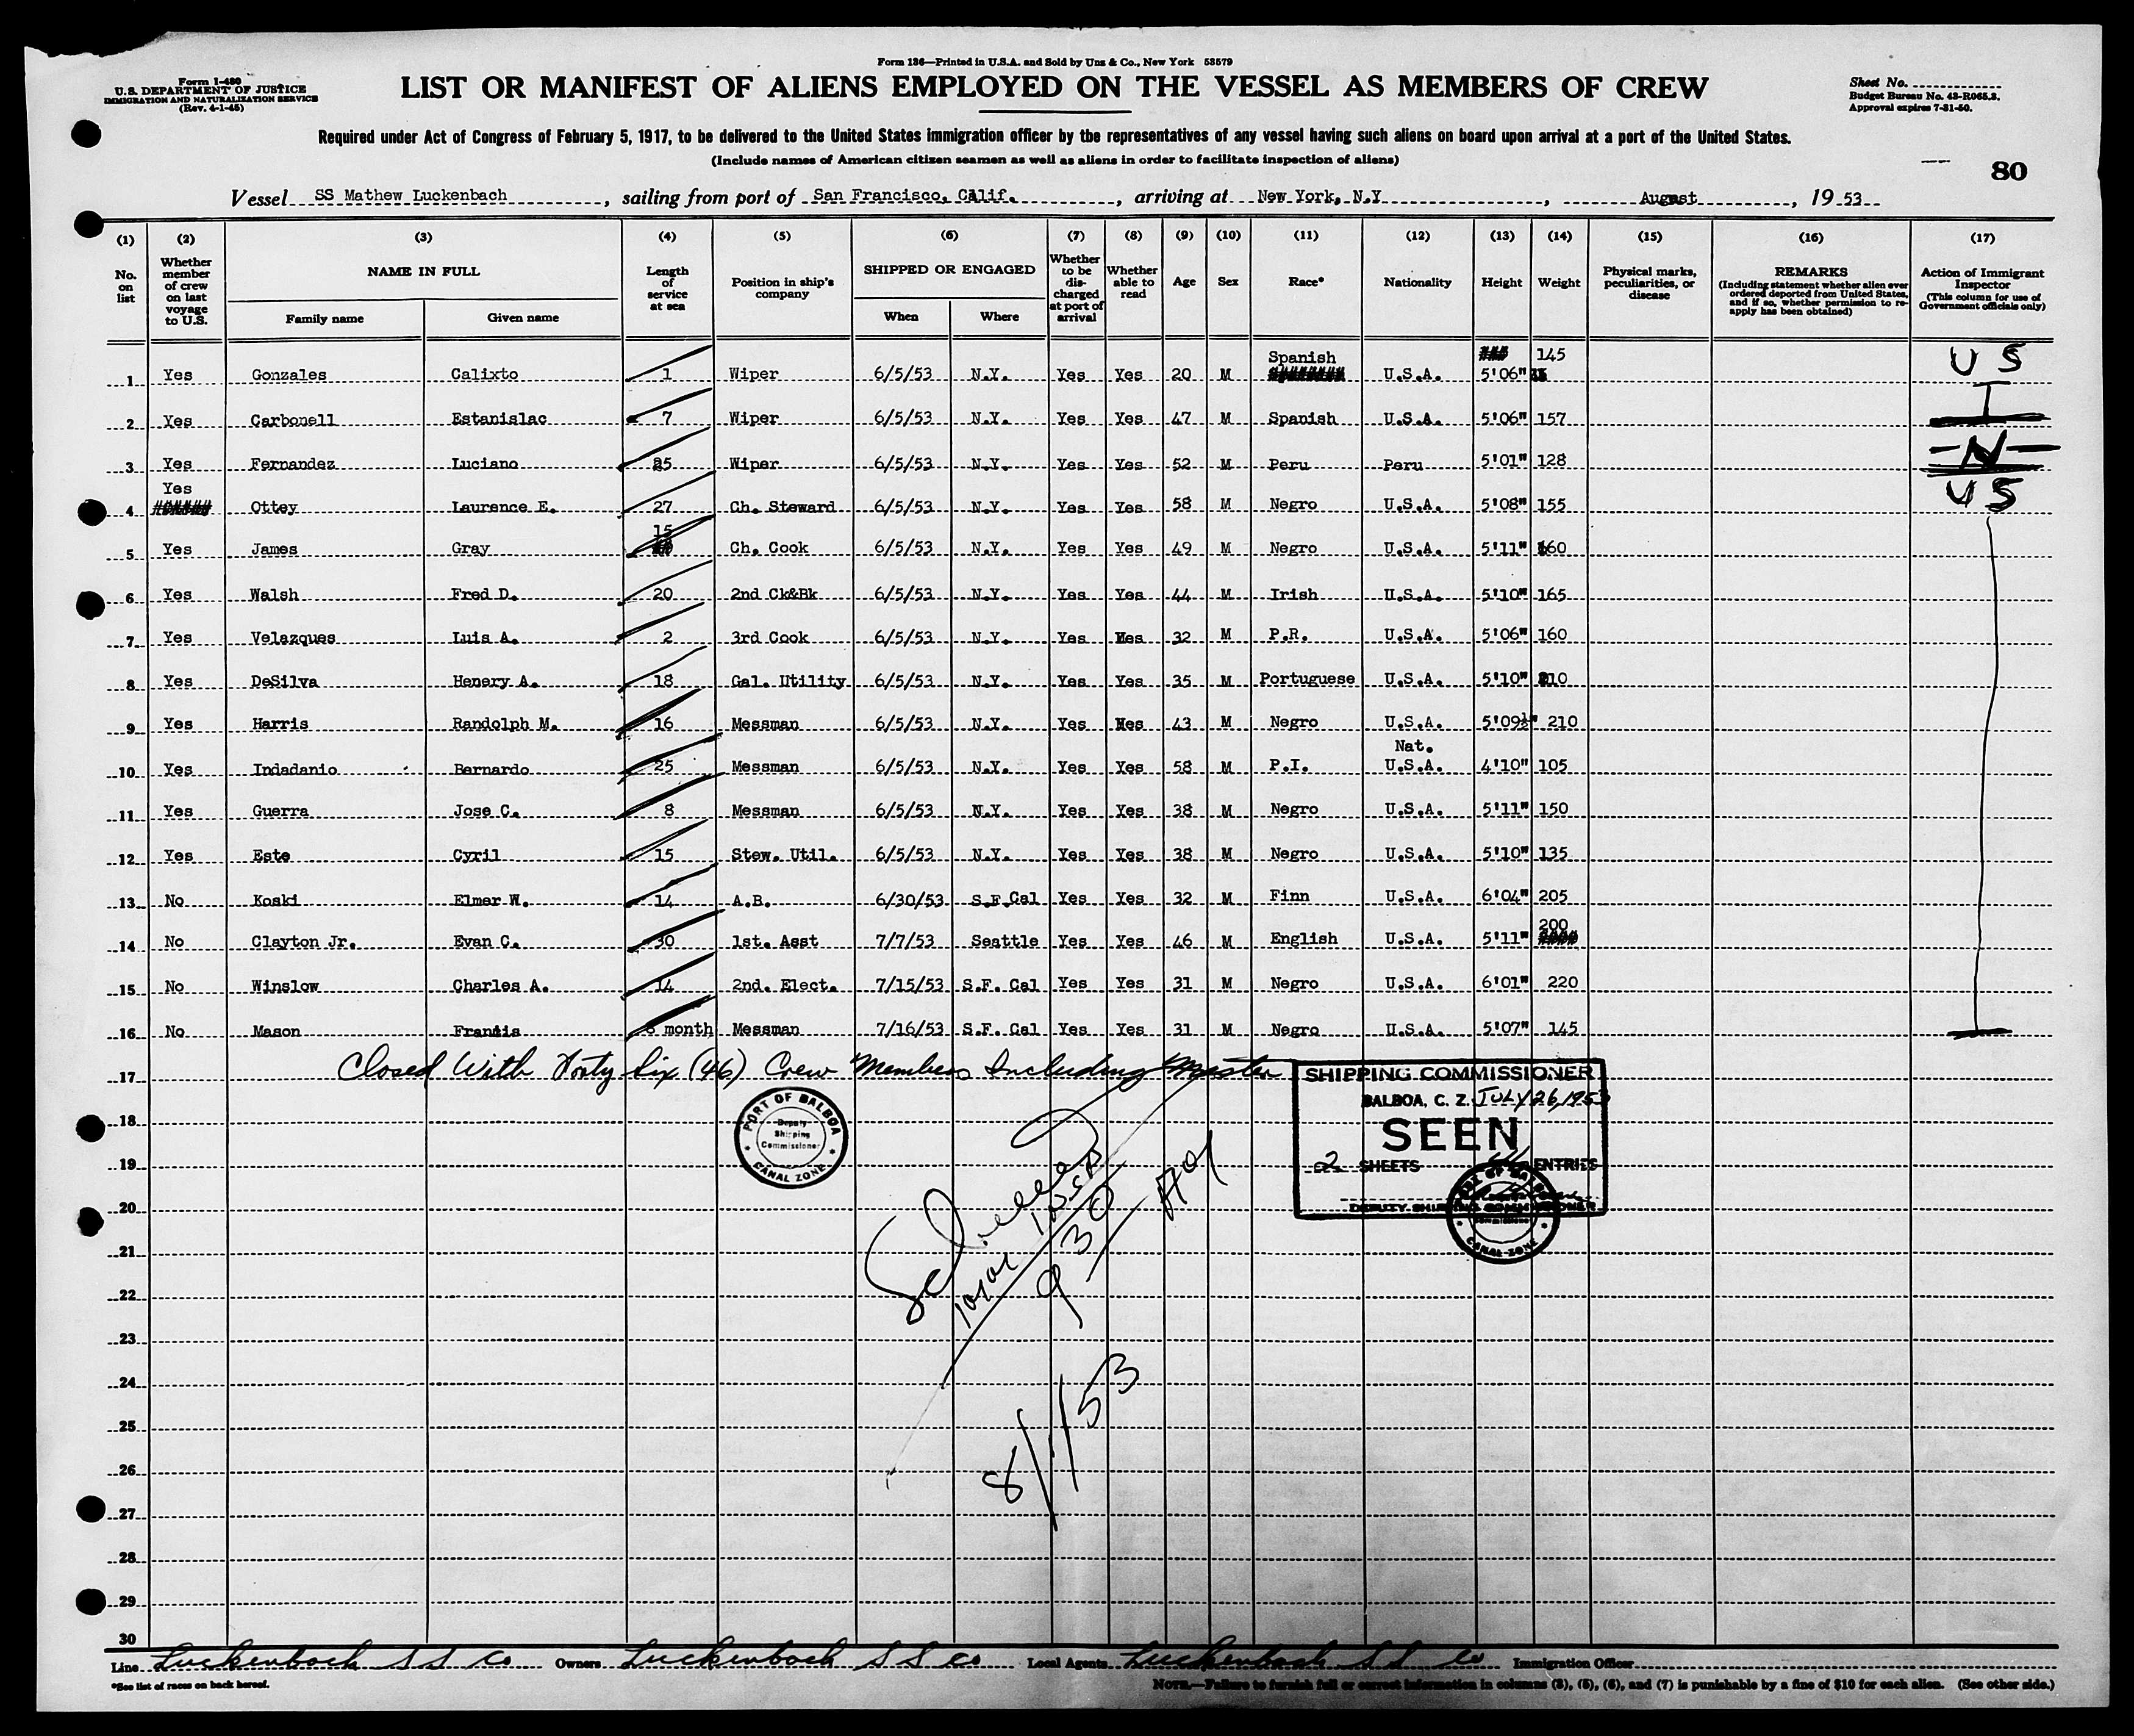 Form I-480
U.S. DEPARTMENT OF JUSTICE
IMMIGRATION AND NATURALIZATION SERVICE
(Rev. 4-1-45)
Form 136—Printed in U.S.A. and Sold by Unz & Co., New York 53579
LIST OR MANIFEST OF ALIENS EMPLOYED ON THE VESSEL AS MEMBERS OF CREW
Sheet No.
Budget Bureau No. 43-R065.3.
Approval expires 7-31-50.
Required under Act of Congress of February 5, 1917, to be delivered to the United States immigration officer by the representatives of any vessel having such aliens on board upon arrival at a port of the United States.
(Include names of American citizen seamen as well as aliens in order to facilitate inspection of aliens)
80
Vessel SS Mathew Luckenbach, sailing from port of San Francisco, Calif., arriving at New York, N.Y, August, 19 53
(1) (2) (3) (4) (5) (6) (7) (8) (9) (10) (11) (12) (13) (14) (15) (16) (17)
No. on list
Whether member of crew on last voyage to U.S.
NAME IN FULL
Family name Given name
Length of service at sea
Position in ship's company
SHIPPED OR ENGAGED
When Where
Whether to be discharged at port of arrival
Whether able to read
Age
Sex
Race*
Nationality
Height
Weight
Physical marks, peculiarities, or disease
REMARKS
(Including statement whether alien ever ordered deported from United States, and if so, whether permission to reapply has been obtained)
Action of Immigrant Inspector
(This column for use of Government officials only)
1 Yes Gonzales Calixto 1 Wiper 6/5/53 N.Y. Yes Yes 20 M Spanish U.S.A. 5'06" 145 U S
2 Yes Carbonell Estanislac 7 Wiper 6/5/53 N.Y. Yes Yes 47 M Spanish U.S.A. 5'06" 157
3 Yes Fernandez Luciano 25 Wiper 6/5/53 N.Y. Yes Yes 52 M Peru Peru 5'01" 128 N
4 Yes Ottey Laurence E. 27 Ch. Steward 6/5/53 N.Y. Yes Yes 58 M Negro U.S.A. 5'08" 155 U S
5 Yes James Gray 15 Ch. Cook 6/5/53 N.Y. Yes Yes 49 M Negro U.S.A. 5'11" 160
6 Yes Walsh Fred D. 20 2nd Ck&Bk 6/5/53 N.Y. Yes Yes 44 M Irish U.S.A. 5'10" 165
7 Yes Velazques Luis A. 2 3rd Cook 6/5/53 N.Y. Yes Yes 32 M P.R. U.S.A. 5'06" 160
8 Yes DeSilva Henery A. 18 Gal. Utility 6/5/53 N.Y. Yes Yes 35 M Portuguese U.S.A. 5'10" 210
9 Yes Harris Randolph M. 16 Messman 6/5/53 N.Y. Yes Yes 43 M Negro U.S.A. 5'09½" 210
10 Yes Indadanio Bernardo 25 Messman 6/5/53 N.Y. Yes Yes 58 M P.I. Nat. U.S.A. 4'10" 105
11 Yes Guerra Jose C. 8 Messman 6/5/53 N.Y. Yes Yes 38 M Negro U.S.A. 5'11" 150
12 Yes Este Cyril 15 Stew. Util. 6/5/53 N.Y. Yes Yes 38 M Negro U.S.A. 5'10" 135
13 No Koski Elmer W. 14 A.B. 6/30/53 S.F Cal Yes Yes 32 M Finn U.S.A. 6'04" 205
14 No Clayton Jr. Evan C. 30 1st. Asst 7/7/53 Seattle Yes Yes 46 M English U.S.A. 5'11" 200
15 No Winslow Charles A. 14 2nd. Elect. 7/15/53 S.F. Cal Yes Yes 31 M Negro U.S.A. 6'01" 220
16 No Mason Francis 8 month Messman 7/16/53 S.F. Cal Yes Yes 31 M Negro U.S.A. 5'07" 145
17 Closed With Forty Six (46) Crew Members Including Master
SHIPPING COMMISSIONER
BALBOA, C. Z. JULY 26, 1953
SEEN
2 SHEETS ENTRIES
DEPUTY SHIPPING COMMISSIONER
PORT OF BALBOA
Deputy
Shipping
Commissioner
CANAL ZONE
PORT OF BALBOA
Commissioner
CANAL ZONE
18
19
20
21
22
23
24
25
26
27
28
29
30
9 30
8/1/53
Line Luckenbach S S Co Owners Luckenbach S S Co Local Agents Luckenbach S S Co Immigration Officer
*See list of races on back hereof.
NOTE.—Failure to furnish full or correct information in columns (3), (5), (6), and (7) is punishable by a fine of $10 for each alien. (See other side.)